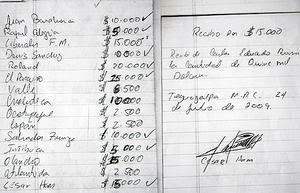 Juan Barahona $10.000✓
Rafael Alegria $5.000✓
Liberales F.M. $15.000✓
Denis Sanchez $10.000✓
Rolland $20.000
El Paraiso $25.000✓
Valle $6.500
Choluteca $10.000
Ocotepeque $2.500
Copán $2.500
Salvador Zuniga $10.000✓
Intibuca $5.000✓
Olancho $15.000
Atlantida $2.500
Cesar Ham $15.000✓
Recibo por $15.000
Recibi de Carlos Eduardo
la Cantidad de Quince mil
Dolares.
Tegucigalpa M.D.C. 24
de Julio de 2009.
Cesar Ham